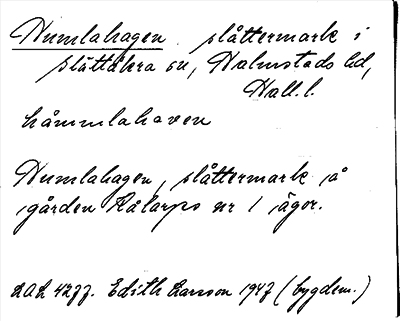 Humlahagen slåttermark i
Slättåkra sn, Halmstads hd,
Hall.l.
håmmlahaven
Humlahagen, slåttermark på
gården Råtarps nr 1 ägor.
LAL 4277. Edith Larsson 1947 (bygdem.)